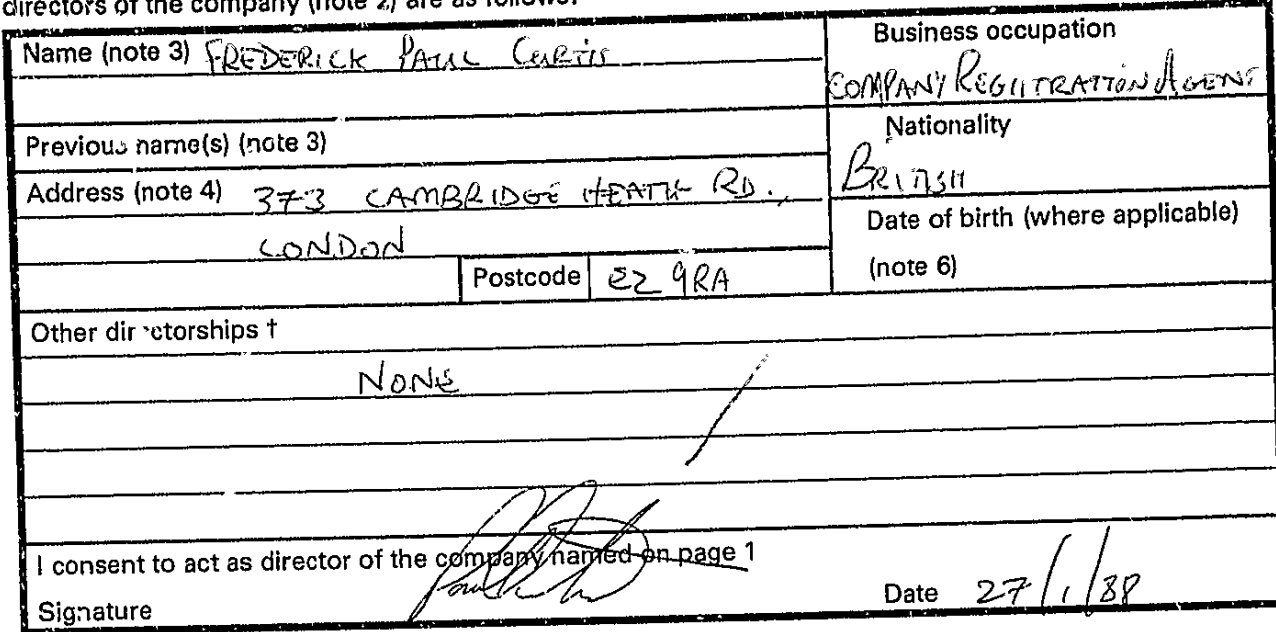 directors of the company (note 2) are as follows:
Name (note 3) FREDERICK PAUL CURTIS
Business occupation
COMPANY REGISTRATION AGENT
Previous name(s) (note 3)
Nationality
BRITISH
Address (note 4) 373 CAMBRIDGE HEATH RD.,
LONDON
Postcode E2 9RA
Date of birth (where applicable)
(note 6)
Other directorships †
NONE
I consent to act as director of the company named on page 1
Signature
Date 27/1/88